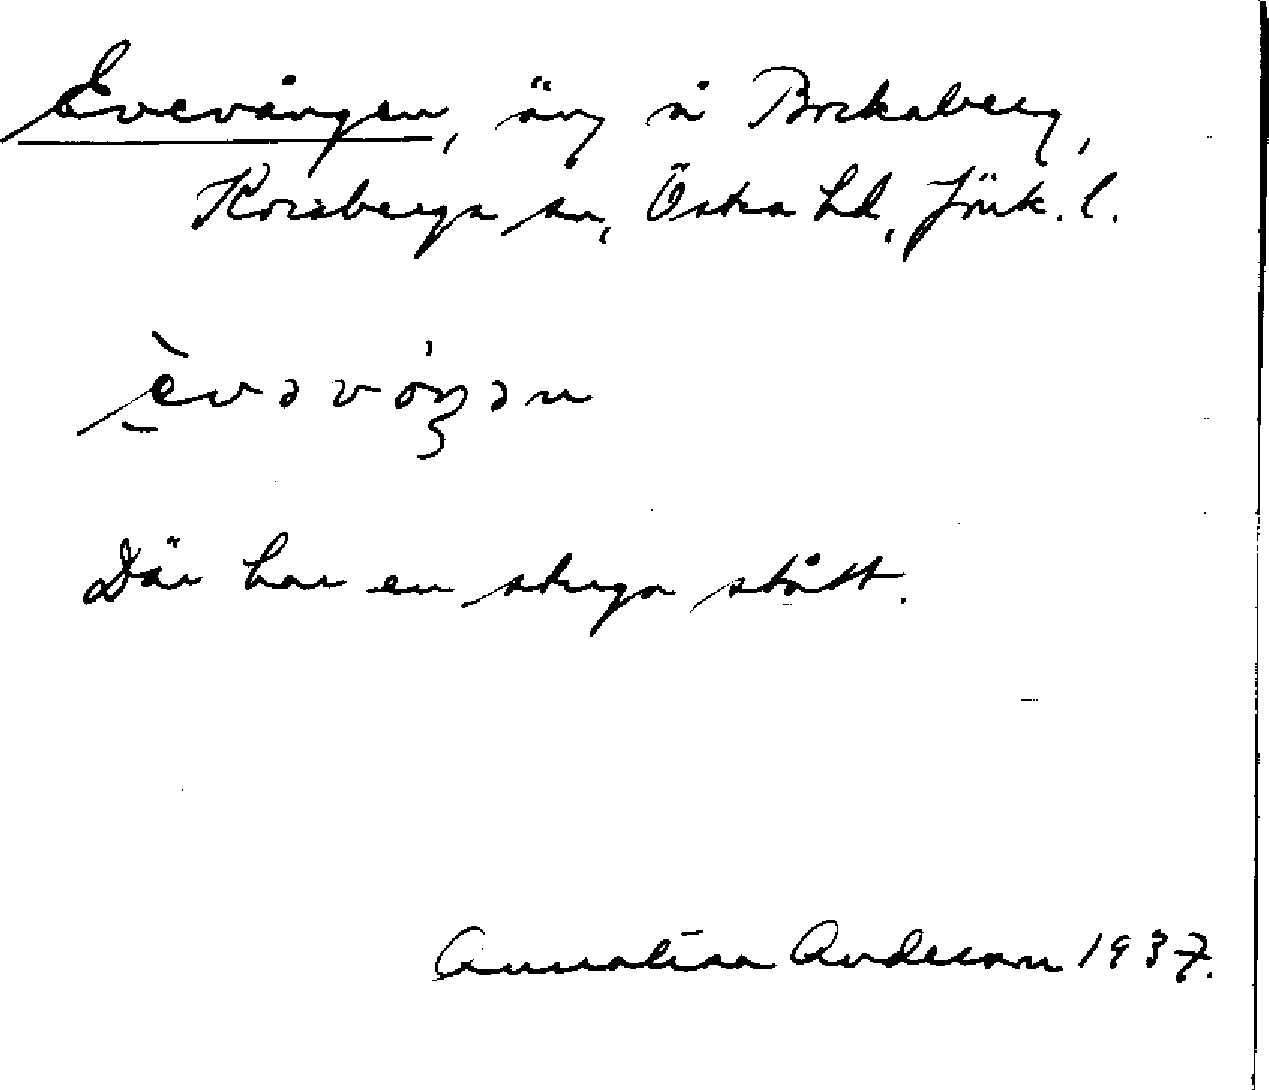 Evevången, äng å Bockaberg,
Korsberga sn, Östra hd, Jönk. l.
èvəvóŋən
Där har en stuga stått.
Annalisa Anderson 1937.